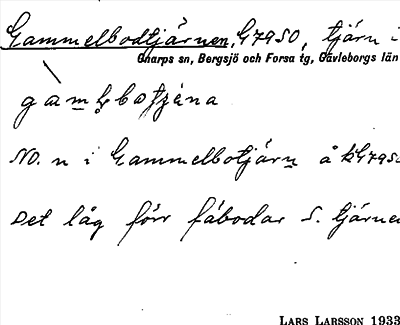 Gammelbodtjärnen, G7950, tjärn i
Gnarps sn, Bergsjö och Forsa tg, Gävleborgs län
No. n i Gammelbotjärn å kG795
Det låg förr fäbodar S. tjärnen
LARS LARSSON 1933